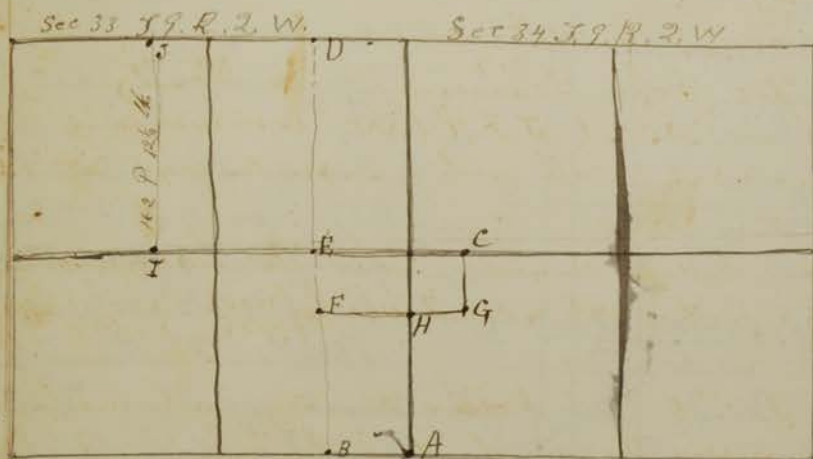 Sec 33 T.9. R. 2. W. Sec 34 T.9 R. 2. W
J D
162 P.
I E C
F H G
B A